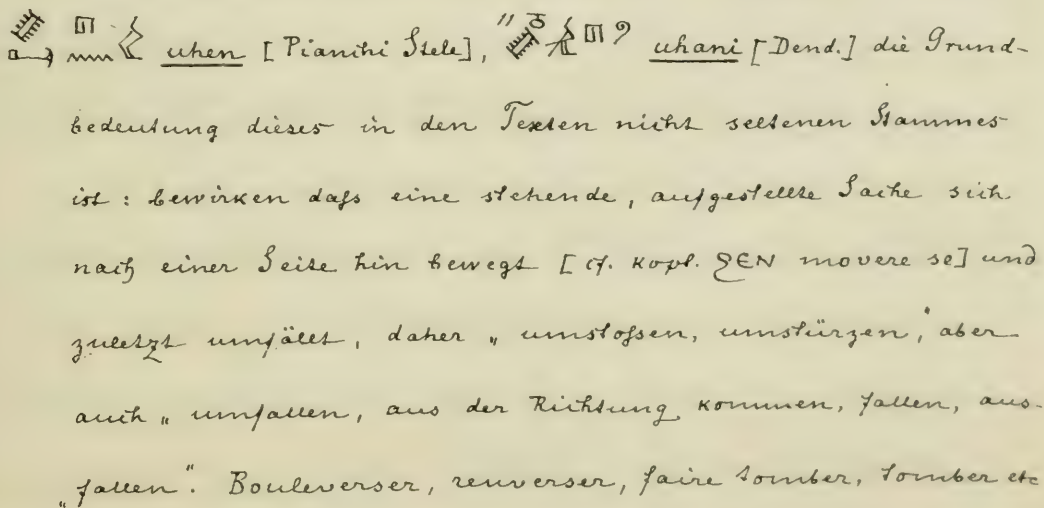 uhen [Pianchi Stele], uhani [Dend.] die Grund-
bedeutung dieses in den Texten nicht seltenen Stammes
ist: bewirken daſs eine stehende, aufgestellte Sache sich
nach einer Seite hin bewegt [cf. kopt. ϩⲉⲛ movere se] und
zuletzt umfällt, daher „umstoſsen, umstürzen," aber
auch „umfallen, aus der Richtung kommen, fallen, aus-
„fallen". Bouleverser, renverser, faire tomber, tomber etc